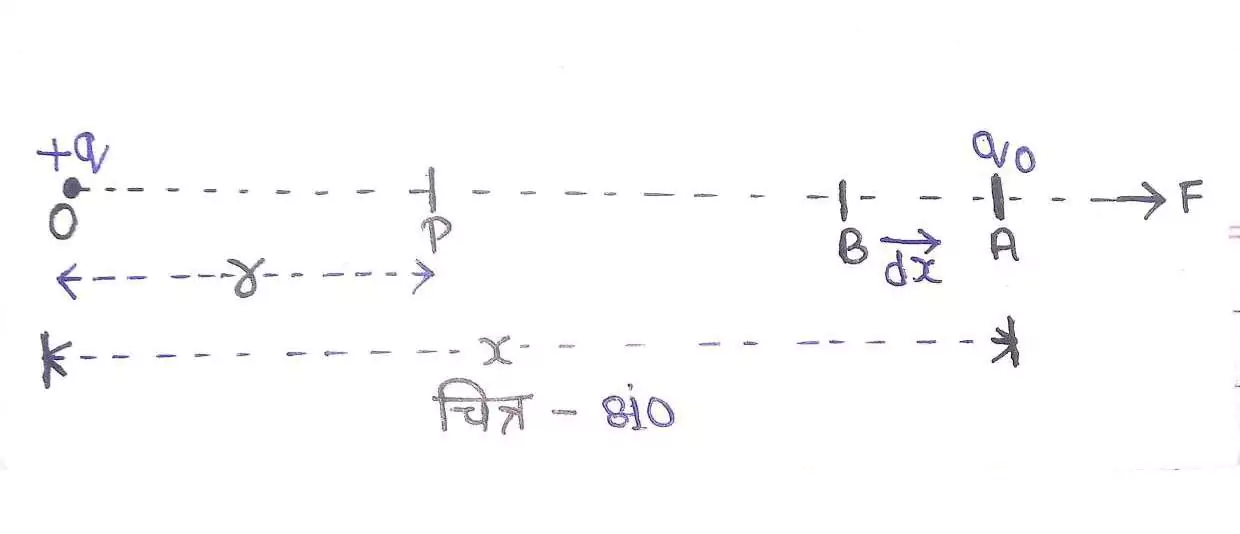 +q q0
O P B A F
dx
r
x
चित्र - 8.10